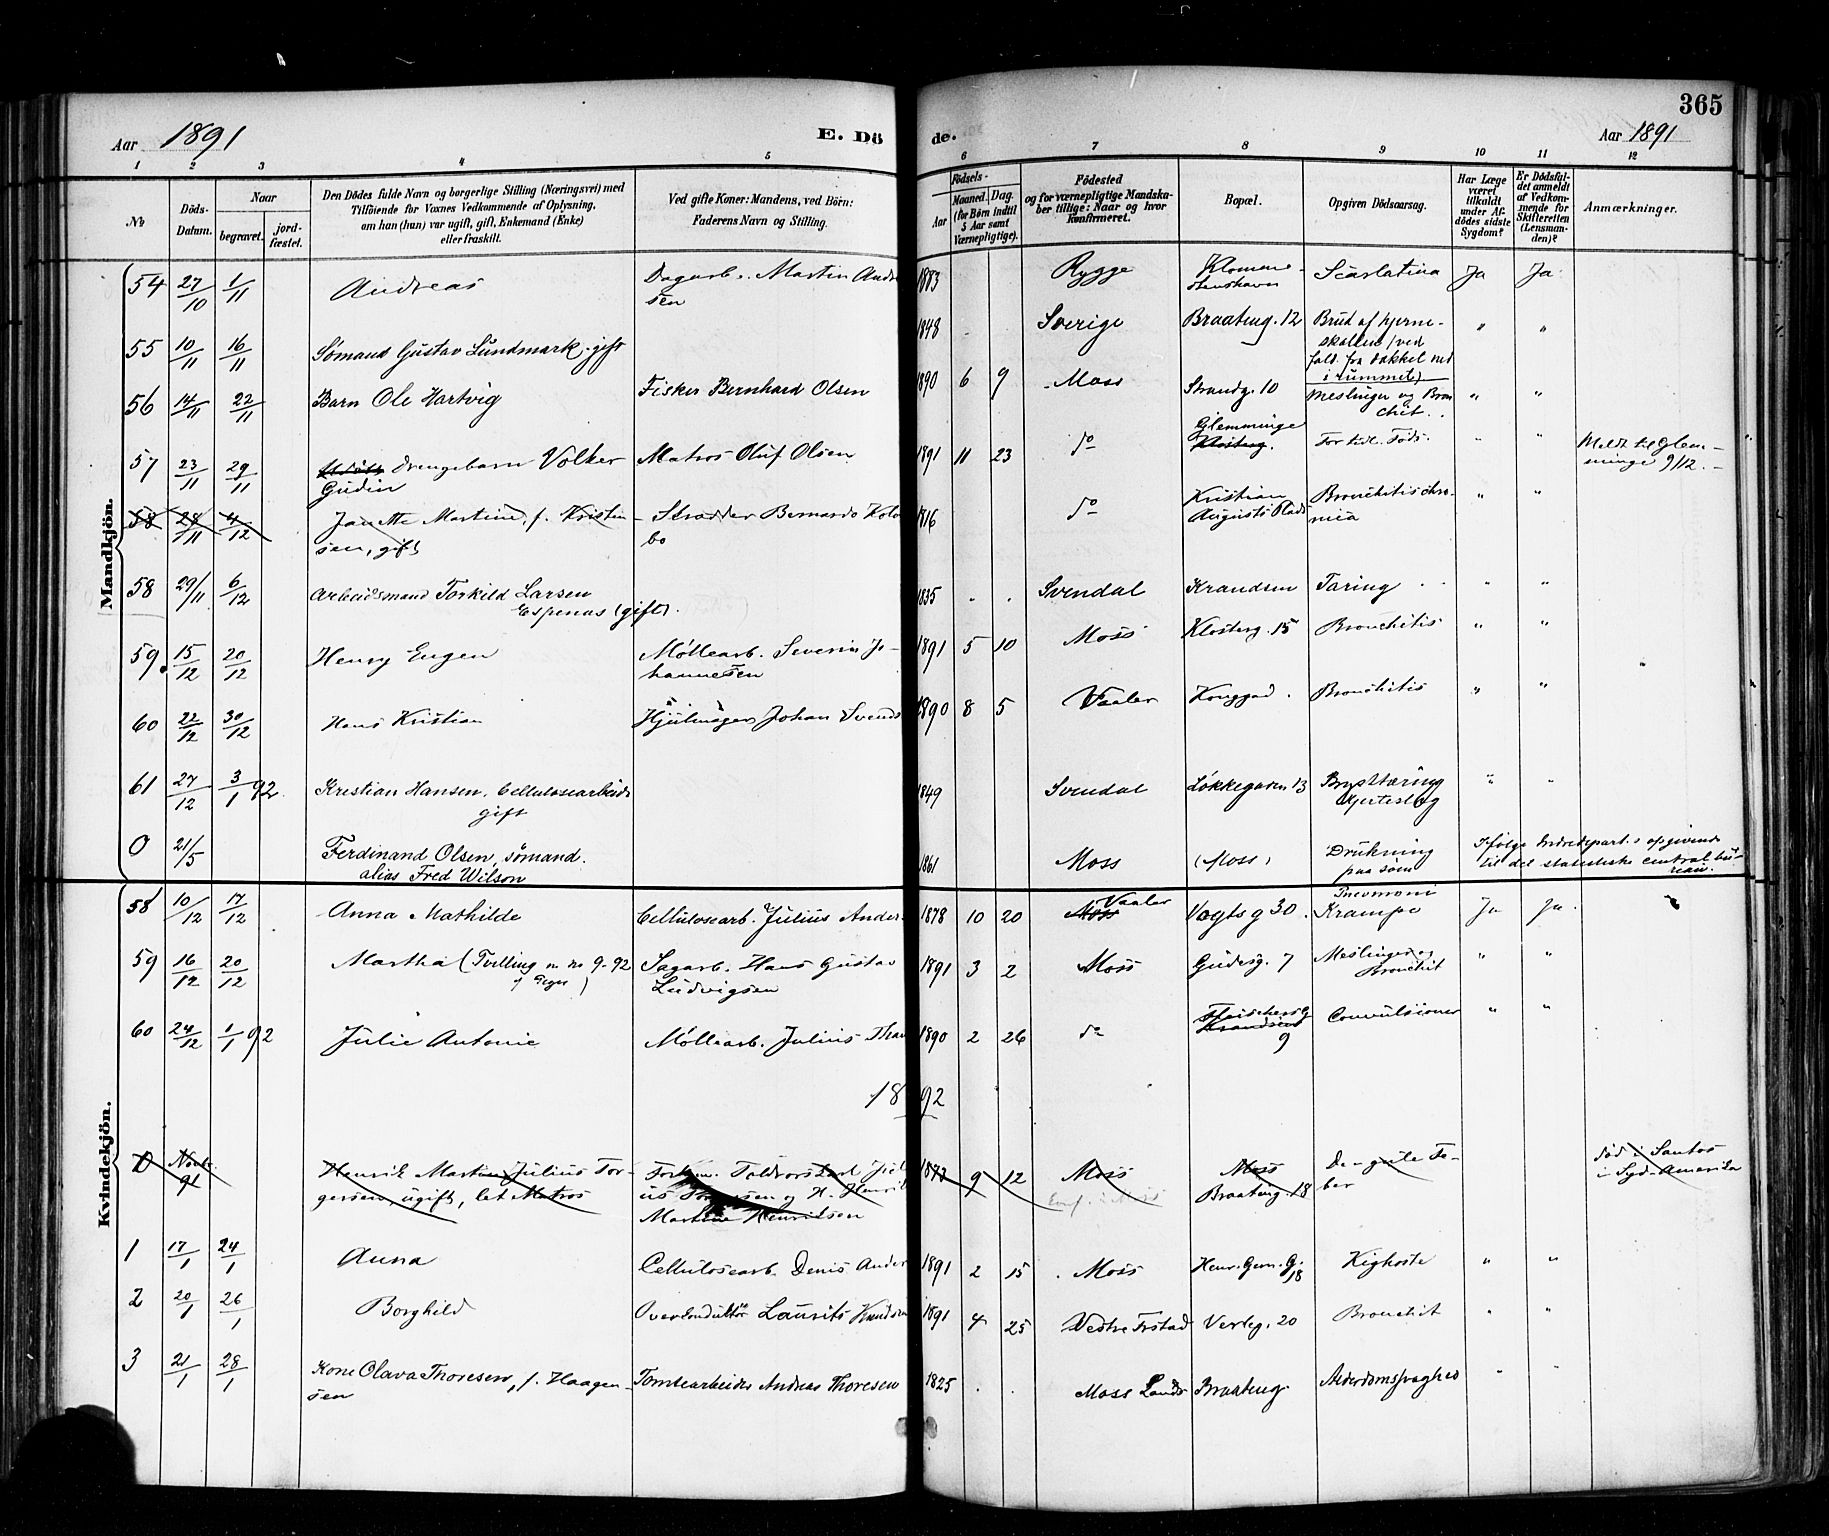 365
Aar 1891
E. Dö
de.
Aar 1891
1 2 3 4 5 6 7 8 9 10 11 12
No
Döds-
Datum.
Naar
begravet.
jord-
fæstet.
Den Dödes fulde Navn og borgerlige Stilling (Næringsvei) med
Tilföiende for Voxnes Vedkommende af Oplysning,
om han (hun) var ugift, gift, Enkemand (Enke)
eller fraskilt.
Ved gifte Koner: Mandens, ved Börn:
Faderens Navn og Stilling.
Födsels-
Aar
Maaned. Dag.
(for Börn indtil
5 Aar samt
Værnepligtige).
Födested
og for værnepligtige Mandska-
ber tillige: Naar og hvor
konfirmeret.
Bopæl.
Opgiven Dödsaarsag.
Har Læge
været
tilkaldt
under Af-
dödes sidste
Sygdom?
Er Dödsfal-
det anmeldt
af Vedkom-
mende for
Skifteretten
(Lensman-
den)?
Anmærkninger.
Mandkjön.
54 27/10 1/11 Andreas Dagarb. Martin Andre
sen 1883 Rygge Scarlatina Ja Ja
55 10/11 16/11 Sømand Gustav Lundmark, gift 1848 Sverige Braateng. 12 Brud af hjerne-
skallen (ved
fald fra dækket ned
i rummet)
56 14/11 22/11 Barn Ole Hartvig Fisker Bernhard Olsen 1890 6 9 Moss Strandg. 10 Meslinger og Bron
chit.
57 23/11 29/11 Drengebarn Volker
Gudin Matros Oluf Olsen 1891 11 23 do Glemminge
Klosterg. For tidl. Føds. " " Meldt til Glem-
minge 9/12.
58 28/11 4/12 Janette Martine, f. Kristen-
sen, gift Bernardo 1816 do Kristian
Augusts Plads Bronchitis chro-
nica " "
58 29/11 6/12 Arbeidsmand Torkild Larsen
Espenæs (gift). 1835 Svendal Krandsen Tæring " "
59. 15/12 20/12 Henry Eugen Møllearb. Severin Jo-
hannesen 1891 5 10 Moss Klosterg. 15 Bronchitis " "
60 22/12 30/12 Hans Kristian Hjulmager Johan Svends 1890 8 5 Vaaler Kongsgad. Bronchitis " "
61 27/12 3/1 92. Kristian Hansen, Cellulosearbeider
gift 1849 Svendal Løkkegaden 13 Brysttæring
Hjerteslag " "
0 21/5 Ferdinand Olsen, sømand.
alias Fred Wilson 1861 Moss (Moss) Drukning
paa søen Ifølge Indredepart.s opgivende
til det statistiske central bu-
reau.
Kvindekjön.
58 10/12 17/12 Anna Mathilde Cellulosearb. Julius Ander- 1878 10 20 Moss Vaaler Vogts g 30. Pneumoni
Krampe Ja Ja.
59 16/12 20/12 Martha (Tvilling m no 9-92 Sagarb. Hans Gustav
Ludvigsen 1891 3 2 Moss Gudesg. 7 Meslinger og
Bronchit " "
60 24/12 1/1 92 Julie Antonie Møllearb. Julius Than 1890 2 26 do Fleischersg
Krandsen
9 Convulsioner " "
1892
0 Novbr.
91 Henrik Martin Julius Tor-
gersen, ugift, let Matros
Martine Henriksen 1873 9 12 Moss Moss
Braateng. 18 Den gule Fe-
ber død i Santos
i Syd-Amerika
1 17/1 24/1 Anna Cellulosearb. Denis Ander 1891 2 15 Moss Henr. Gern. G.
18 Kighoste " "
2 20/1 26/1 Borghild Overkonduktør Laurits Knudsen 1891 4 25 Vestre Frstad Verleg. 20 Bronchit " "
3 21/1 28/1 Kone Olava Thoresen, f. Haagen-
sen Tomtearbeider Andreas Thoresen 1825 Moss Lands Braateng. Alderdomssvaghed " "